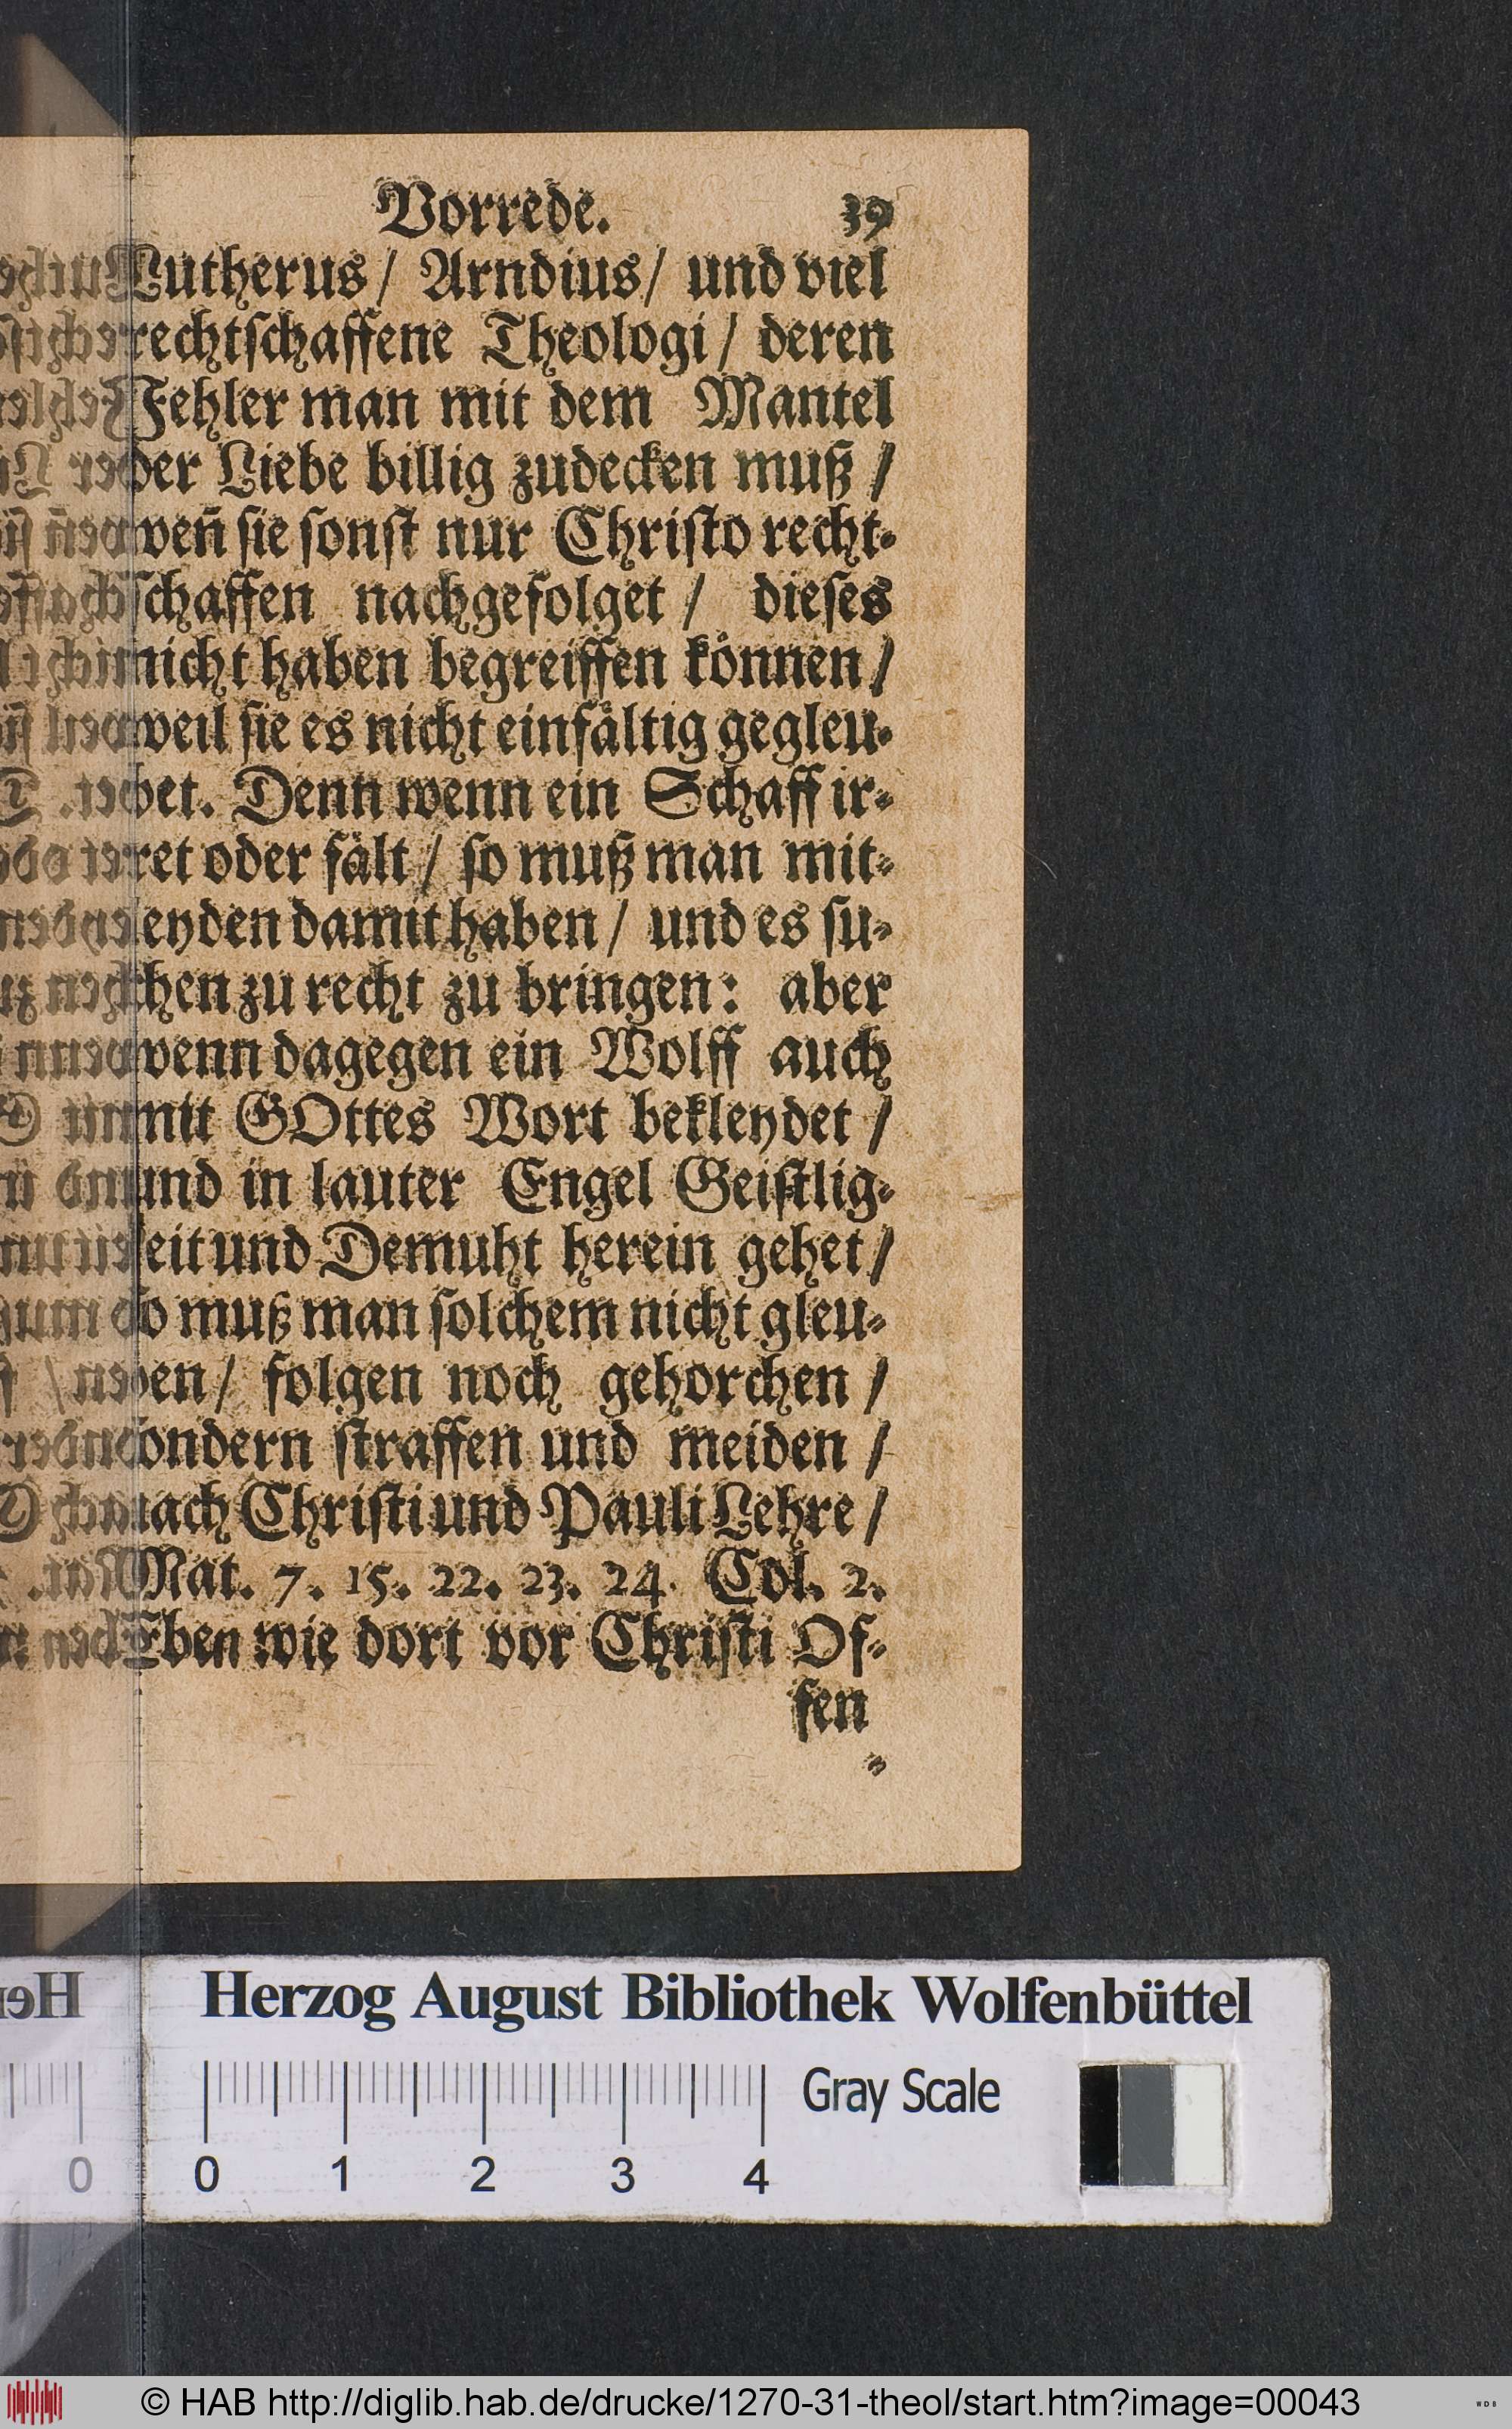 Vorrede. 39
Lutherus/ Arndius/ und viel
rechtſchaffene Theologi/ deren
Fehler man mit dem Mantel
der Liebe billig zudecken muß /
weñ ſie ſonſt nur Chriſto recht-
ſchaffen nachgefolget / dieſes
nicht haben begreiffen koͤnnen/
weil ſie es nicht einfaͤltig gegleu-
bet. Denn wenn ein Schaff ir-
ret oder faͤlt / ſo muß man mit-
leyden damit haben / und es ſu-
chen zu recht zu bringen: aber
wenn dagegen ein Wolff auch
mit GOttes Wort bekleydet /
und in lauter Engel Geiſtlig-
keit und Demuht herein gehet/
ſo muß man ſolchem nicht gleu-
ben/ folgen noch gehorchen /
ſondern ſtraffen und meiden /
nach Chriſti und Pauli Lehre /
Mat. 7. 15. 22. 23. 24. Col. 2.
Eben wie dort vor Chriſti Of-
fen
Herzog August Bibliothek Wolfenbüttel
Gray Scale
0 1 2 3 4
© HAB http://diglib.hab.de/drucke/1270-31-theol/start.htm?image=00043
WDB